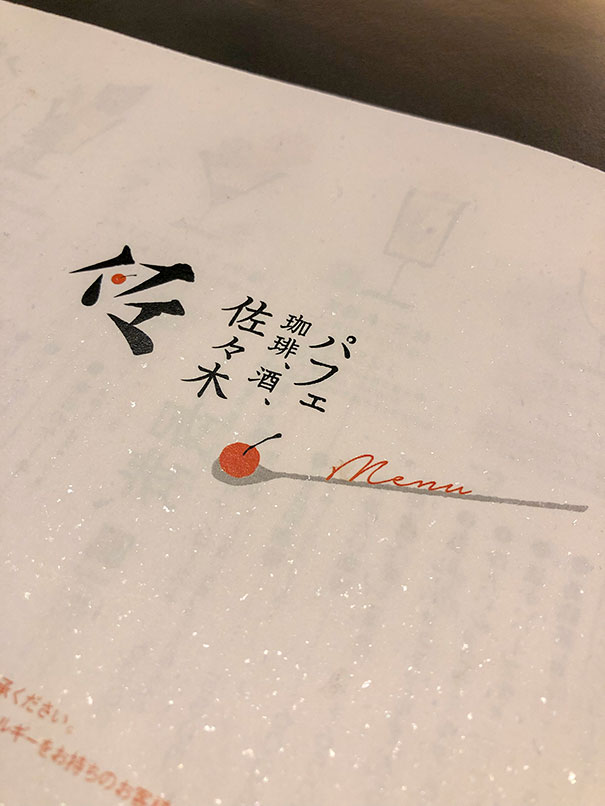 パフェ
珈琲、酒、
佐々木
Menu
承ください。
ルギーをお持ちのお客様